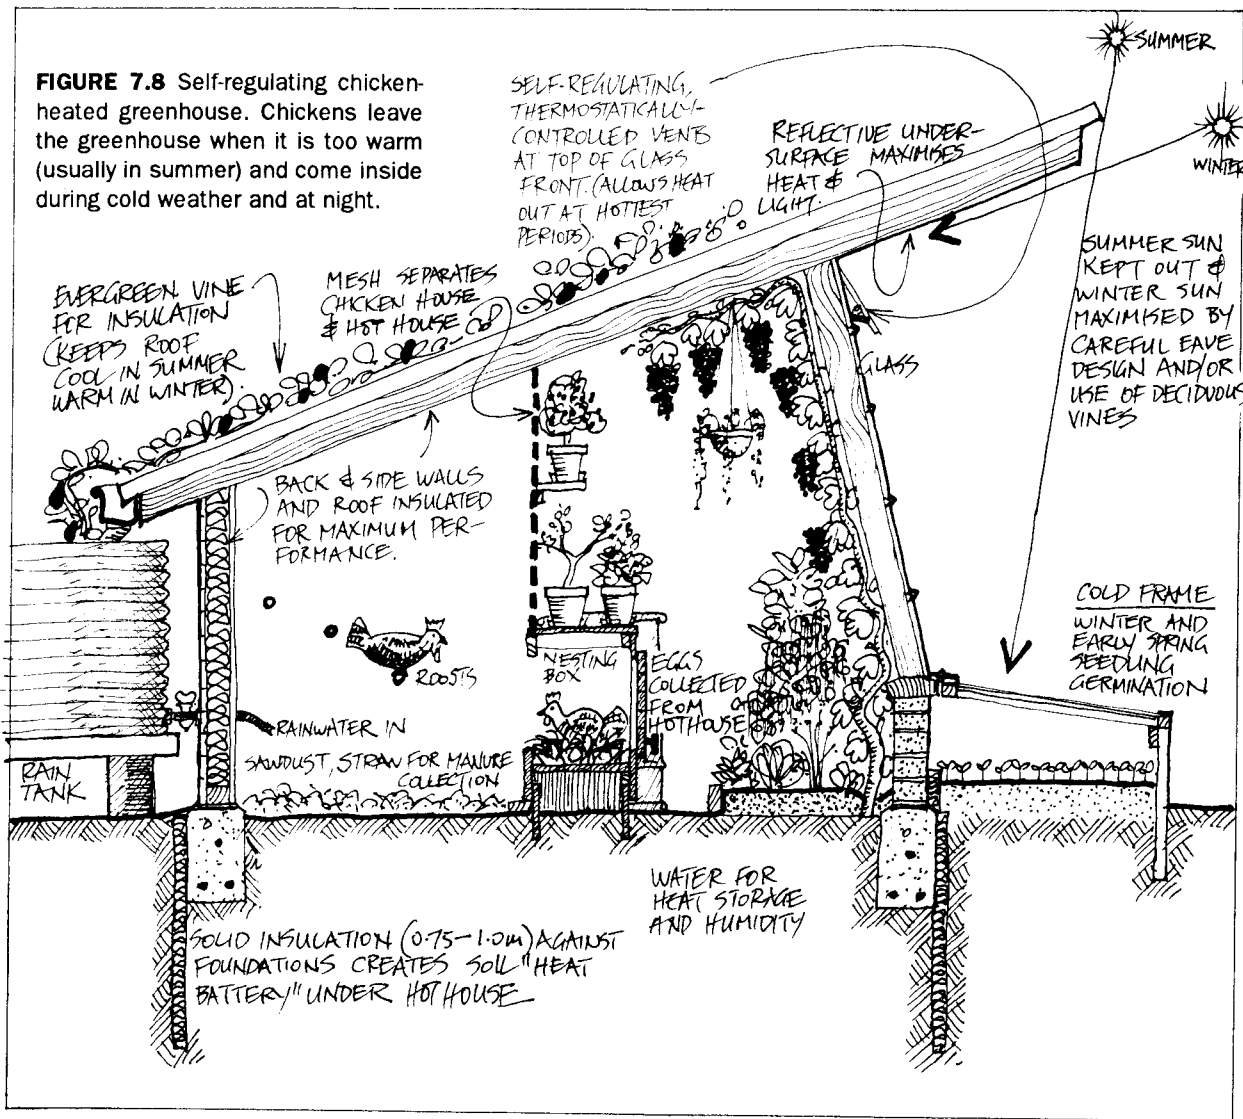 FIGURE 7.8 Self-regulating chicken-
heated greenhouse. Chickens leave
the greenhouse when it is too warm
(usually in summer) and come inside
during cold weather and at night.
SELF-REGULATING,
THERMOSTATICALLY-
CONTROLLED VENTS
AT TOP OF GLASS
FRONT. (ALLOWS HEAT
OUT AT HOTTEST
PERIODS).
REFLECTIVE UNDER-
SURFACE MAXIMISES
HEAT &
LIGHT.
SUMMER
WINTER
EVERGREEN VINE
FOR INSULATION
(KEEPS ROOF
COOL IN SUMMER
WARM IN WINTER).
MESH SEPARATES
CHICKEN HOUSE
& HOT HOUSE
SUMMER SUN
KEPT OUT &
WINTER SUN
MAXIMISED BY
CAREFUL EAVE
DESIGN AND/OR
USE OF DECIDUOUS
VINES
GLASS
BACK & SIDE WALLS
AND ROOF INSULATED
FOR MAXIMUM PER-
FORMANCE.
COLD FRAME
WINTER AND
EARLY SPRING
SEEDLING
GERMINATION
ROOSTS
NESTING
BOX
EGGS
COLLECTED
FROM
HOTHOUSE
RAINWATER IN
SAWDUST, STRAW FOR MANURE
COLLECTION
RAIN
TANK
WATER FOR
HEAT STORAGE
AND HUMIDITY
SOLID INSULATION (0.75-1.0m) AGAINST
FOUNDATIONS CREATES SOIL "HEAT
BATTERY" UNDER HOTHOUSE